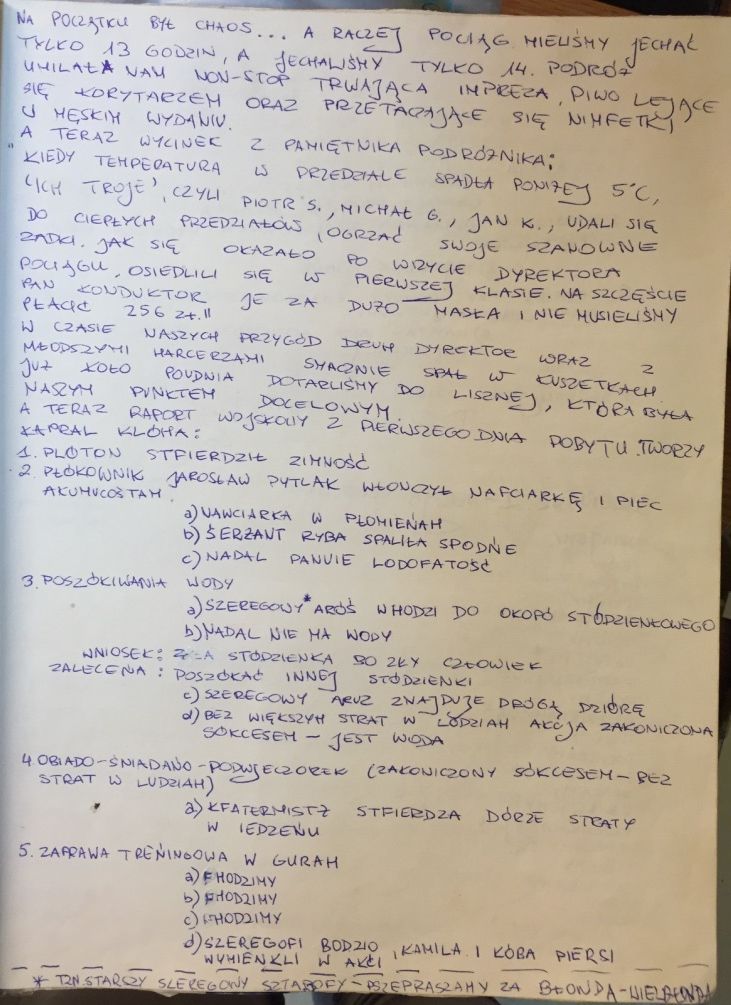 NA POCZĄTKU BYŁ CHAOS... A RACZEJ POCIĄG. MIELIŚMY JECHAĆ
TYLKO 13 GODZIN, A JECHALIŚMY TYLKO 14. PODRÓŻ
UMILAŁA NAM NON-STOP TRWAJĄCA IMPREZA, PIWO LEJĄCE
SIĘ KORYTARZEM ORAZ PRZETACZAJĄCE SIĘ NIMFETKI
W MĘSKIM WYDANIU.
A TERAZ WYCINEK Z PAMIĘTNIKA PODRÓŻNIKA:
"KIEDY TEMPERATURA W PRZEDZIALE SPADŁA PONIŻEJ 5°C,
"ICH TROJE", CZYLI PIOTR S., MICHAŁ G., JAN K., UDALI SIĘ
DO CIEPŁYCH PRZEDZIAŁÓW, OGRZAĆ SWOJE SZANOWNE
ZADKI. JAK SIĘ OKAZAŁO PO WIZYCIE DYREKTORA
POCIĄGU, OSIEDLILI SIĘ W PIERWSZEJ KLASIE. NA SZCZĘŚCIE
PAN KONDUKTOR JE ZA DUŻO MASŁA I NIE MUSIELIŚMY
PŁACIĆ 256 ZŁ."
W CZASIE NASZYCH PRZYGÓD DRUH DYREKTOR WRAZ Z
MŁODSZYMI HARCERZAMI SMACZNIE SPAŁ W KUSZETKACH
JUŻ KOŁO POUDNIA DOTARLIŚMY DO LISZNEJ, KTÓRA BYŁA
NASZYM PUNKTEM DOCELOWYM.
A TERAZ RAPORT WOJSKOWY Z PIERWSZEGO DNIA POBYTU. TWORZY
KAPRAL KLÓHA:
1. PLÓTON STFIERDZIŁ ZIMNOŚĆ
2. PŁÓKOWNIK JAROSŁAW PYTLAK WŁONCZYŁ NAFCIARKĘ I PIEC
AKUMUCOSTAM.
a) NAWCIARKA W PŁOMIENAH
b) SERŻANT RYBA SPALIŁA SPODNE
c) NADAL PANUIE LODOFATOŚĆ
3. POSZÓKIWANIA WODY
a) SZEREGOWY* ARÓŚ WHODZI DO OKOPÓ STÓDZIENKOWEGO
b) NADAL NIE MA WODY
WNIOSEK: ZŁA STÓDZIENKA BO ZŁY CZŁOWIEK
ZALECENA: POSZÓKAĆ INNEJ STÓDZIENKI
c) SZEREGOWY ARUZ ZNAJDUJE DRÓGĄ DZIÓRĘ
d) BEZ WIĘKSZYH STRAT W LÓDZIAH AKCJA ZAKONICZONA
SÓKCESEM - JEST WODA
4. OBIADO-ŚNIADANO-PODWJECZOREK (ZAKONICZONY SÓKCESEM - BEZ
STRAT W LUDZIAH)
a) KFATERMISTŻ STFIERDZA DÓRZE STRATY
W IEDZENU
5. ZAPRAWA TRENINGOWA W GURAH
a) FHODZIMY
b) FHODZIMY
c) FHODZIMY
d) SZEREGOFI BODZIO, KAMILA I KÓBA PIERSI
WYMIENKLI W AKCI
* TZN. STARSZY SZEREGOWY SZTABOFY - PSZEPRASZAMY ZA BŁONDA-WIELBŁONDA